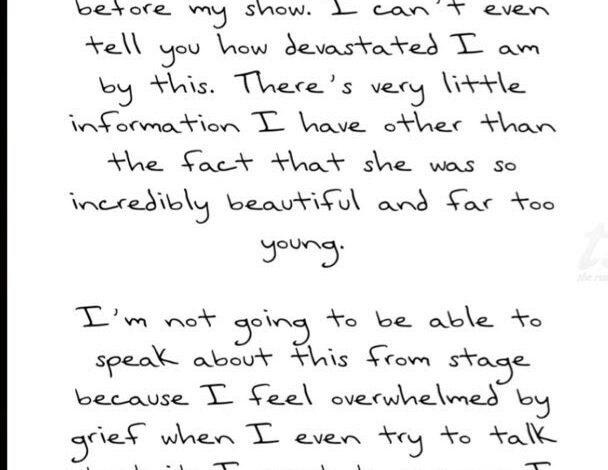 before my show. I can't even
tell you how devastated I am
by this. There's very little
information I have other than
the fact that she was so
incredibly beautiful and far too
young.
I'm not going to be able to
speak about this from stage
because I feel overwhelmed by
grief when I even try to talk